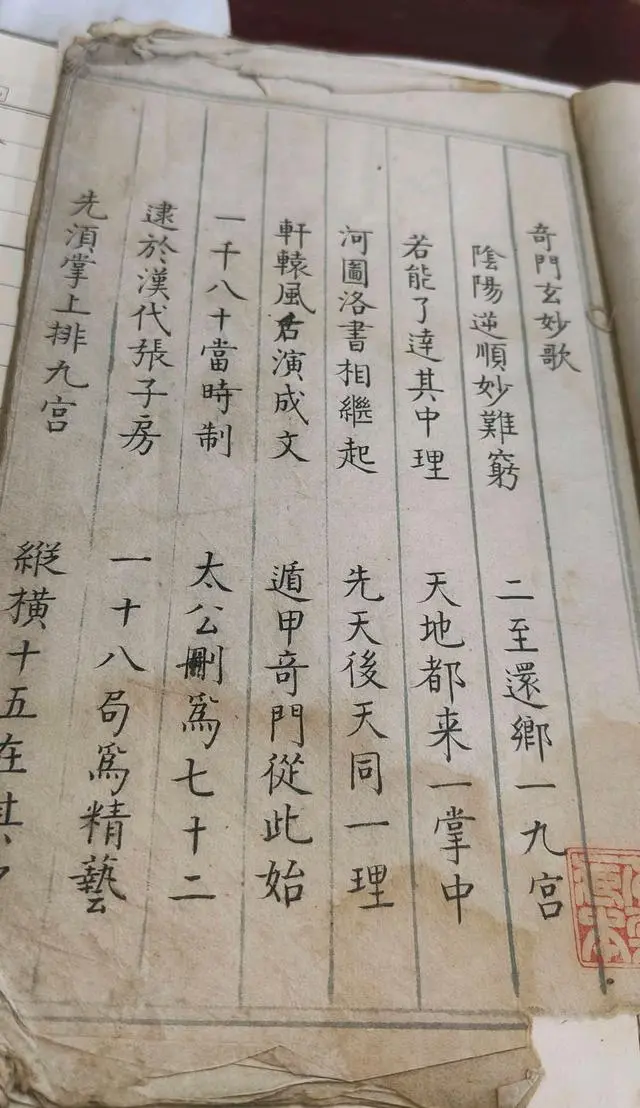 奇門玄妙歌
陰陽逆順妙難窮 二至還鄉一九宮
若能了達其中理 天地都来一掌中
河圖洛書相繼起 先天後天同一理
軒轅風后演成文 遁甲奇門從此始
一千八十當時制 太公刪爲七十二
逮於漢代張子房 一十八局爲精藝
先須掌上排九宮 縱橫十五在其